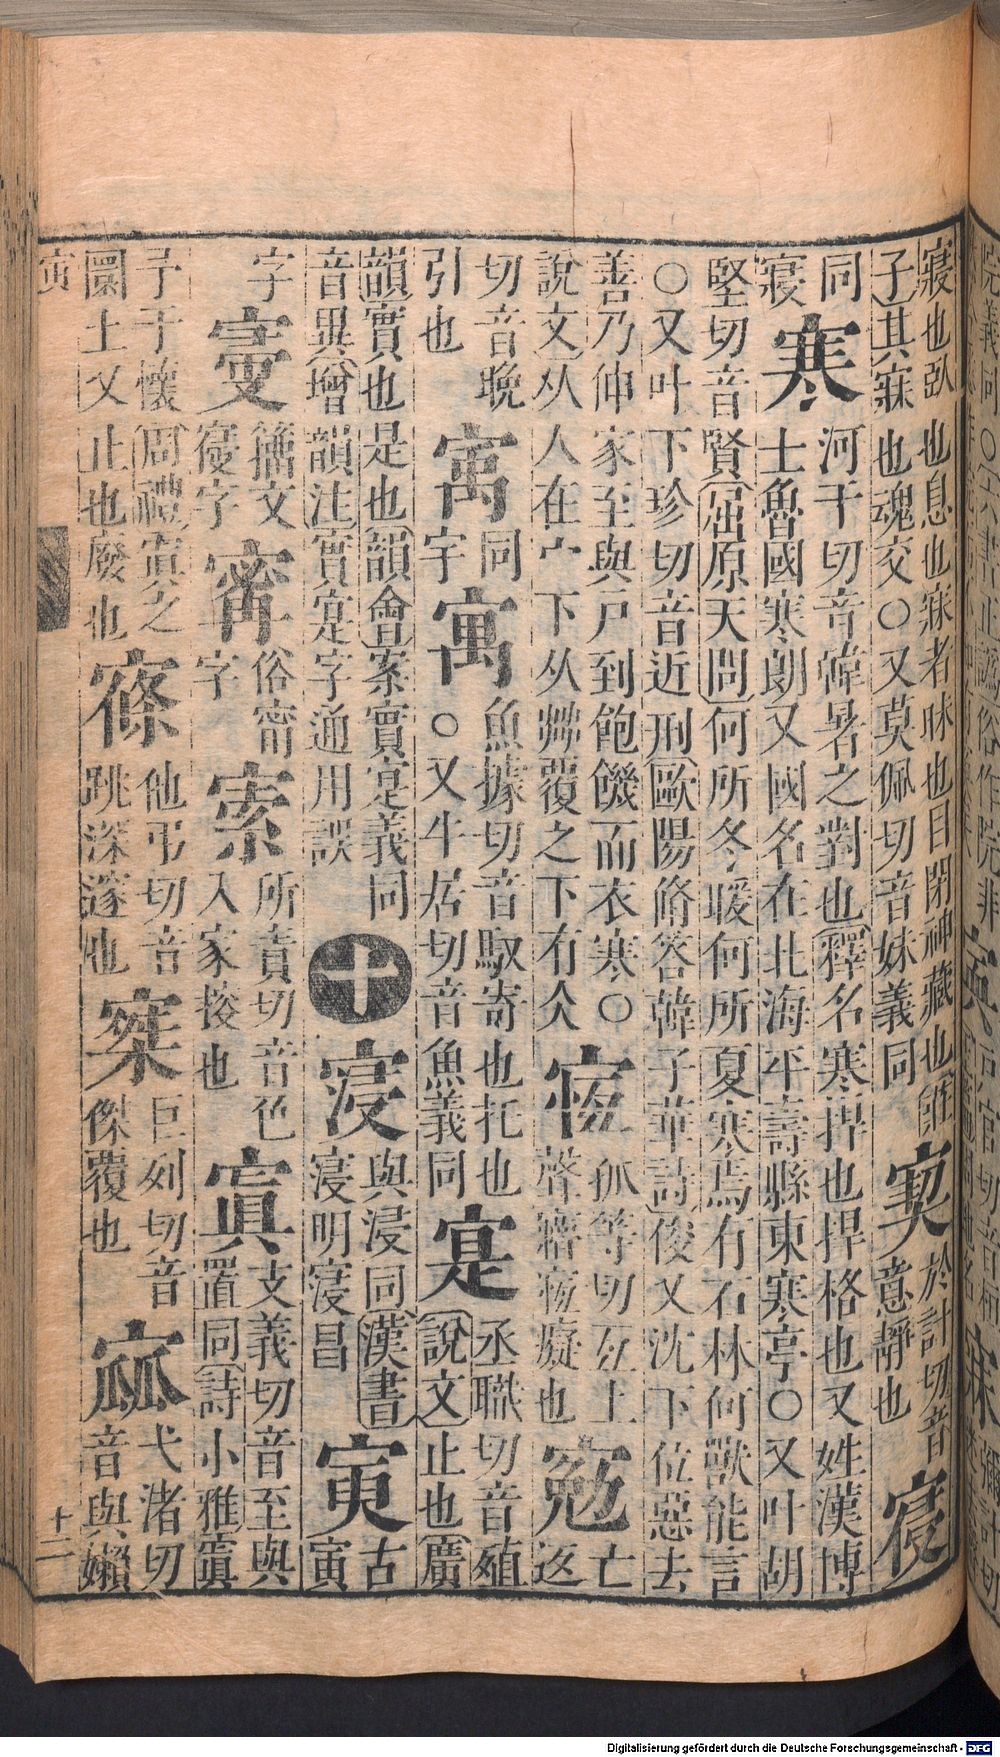 寢也臥也息也寐者昧也目閉神藏也莊
子其寐也魂交〇又莫佩切音妹義同
窫
於計切音
意靜也
寑
同
寢
寒
河干切音韓暑之對也釋名寒捍也捍格也又姓漢博
士魯國寒朗又國名在北海平壽縣東寒亭〇又叶胡
堅切音賢屈原天問何所冬暖何所夏寒焉有石林何獸能言
〇又叶下珍切音近刑歐陽脩答韓子華詩俊又沈下位惡去
善乃伸家至與戸到飽饑而衣寒〇
說文从人在宀下从茻覆之下有仌
孤等切亙上
聲癡也
亡
返
切音晚
引也
㝢
同
宇字
寓
魚據切音馭寄也托也
〇又牛居切音魚義同
寔
丞職切音殖
說文止也廣
韻實也是也韻會案實寔義同
音異增韻注實寔字通用誤
十
寖
與浸同漢書
寖明寖昌
寅
古
寅
字
籒文
寑字
甯
俗甯
字
索
所責切音色
入家搜也
寘
支義切音至與
置同詩小雅寘
予于懷周禮寘之
圜土又止也廢也
他弔切音
跳深邃也
巨列切音
傑覆也
㼌
弋渚切
音與嬾
寅
十二
Digitalisierung gefördert durch die Deutsche Forschungsgemeinschaft - DFG